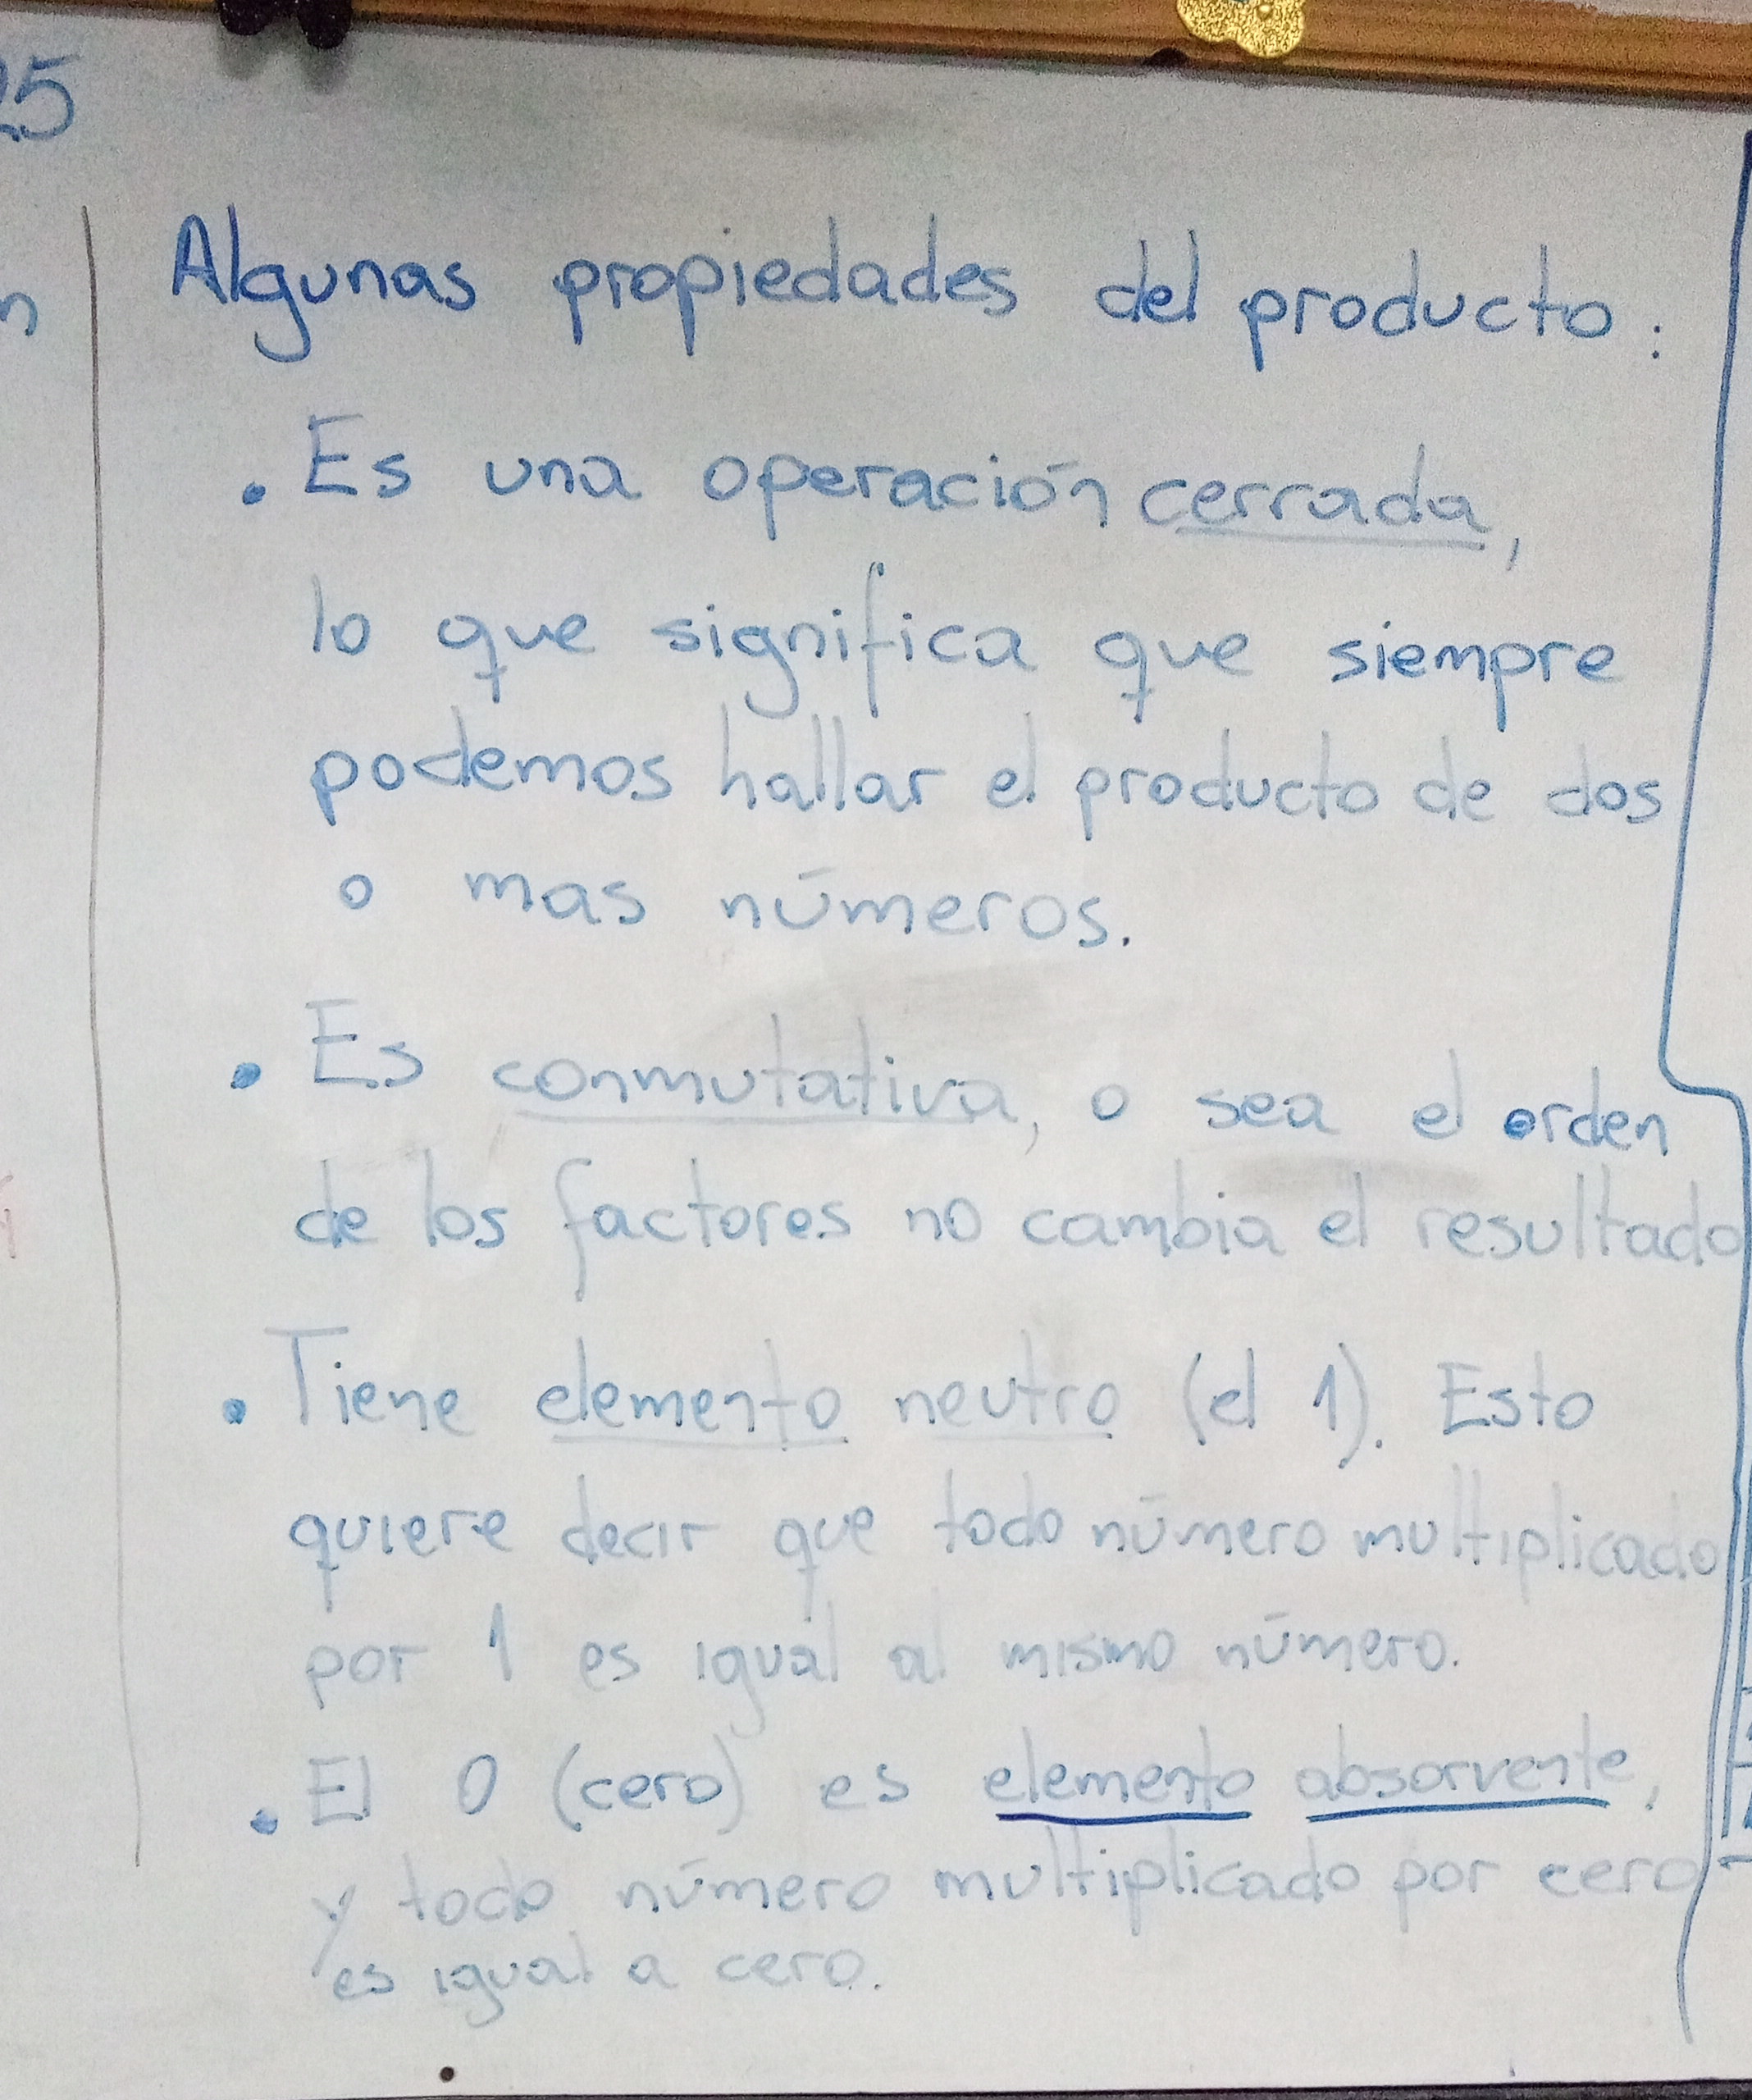 25
n
Algunas propiedades del producto:
• Es una operación cerrada,
lo que significa que siempre
podemos hallar el producto de dos
o mas números.
• Es conmutativa, o sea el orden
de los factores no cambia el resultado
• Tiene elemento neutro (el 1). Esto
quiere decir que todo número multiplicado
por 1 es igual al mismo número.
• El 0 (cero) es elemento absorvente,
y todo número multiplicado por cero
es igual a cero.